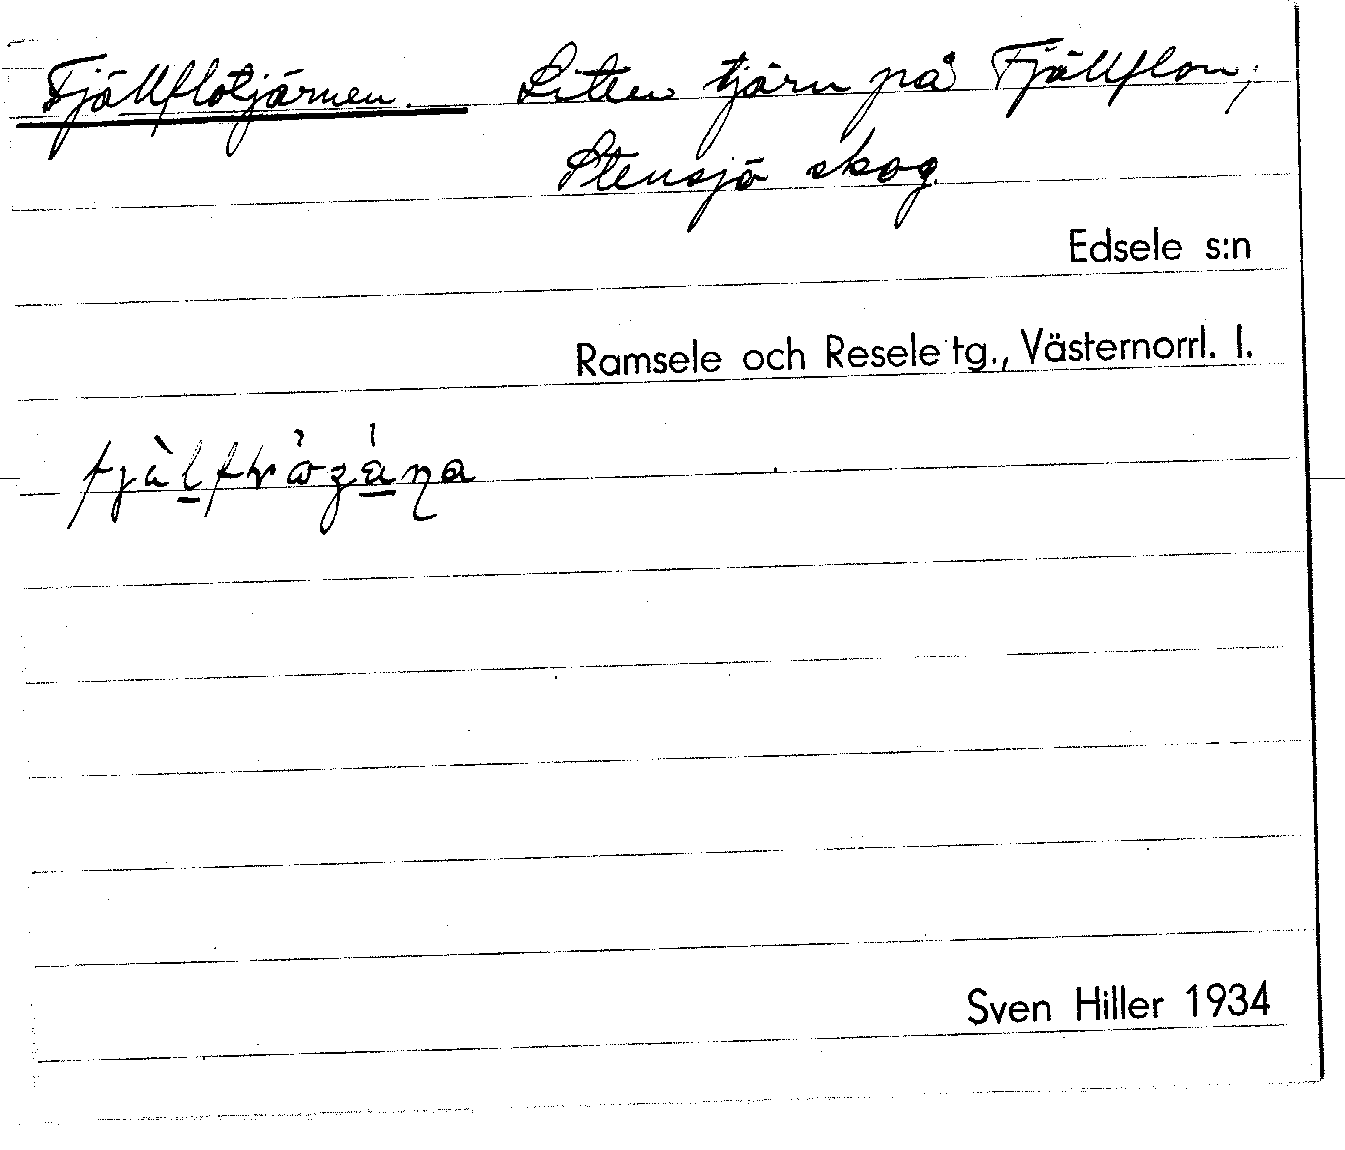 Fjällflotjärnen. Liten tjärn på Fjällflon,
Stensjö skog.
Edsele s:n
Ramsele och Resele tg., Västernorrl. l.
Sven Hiller 1934